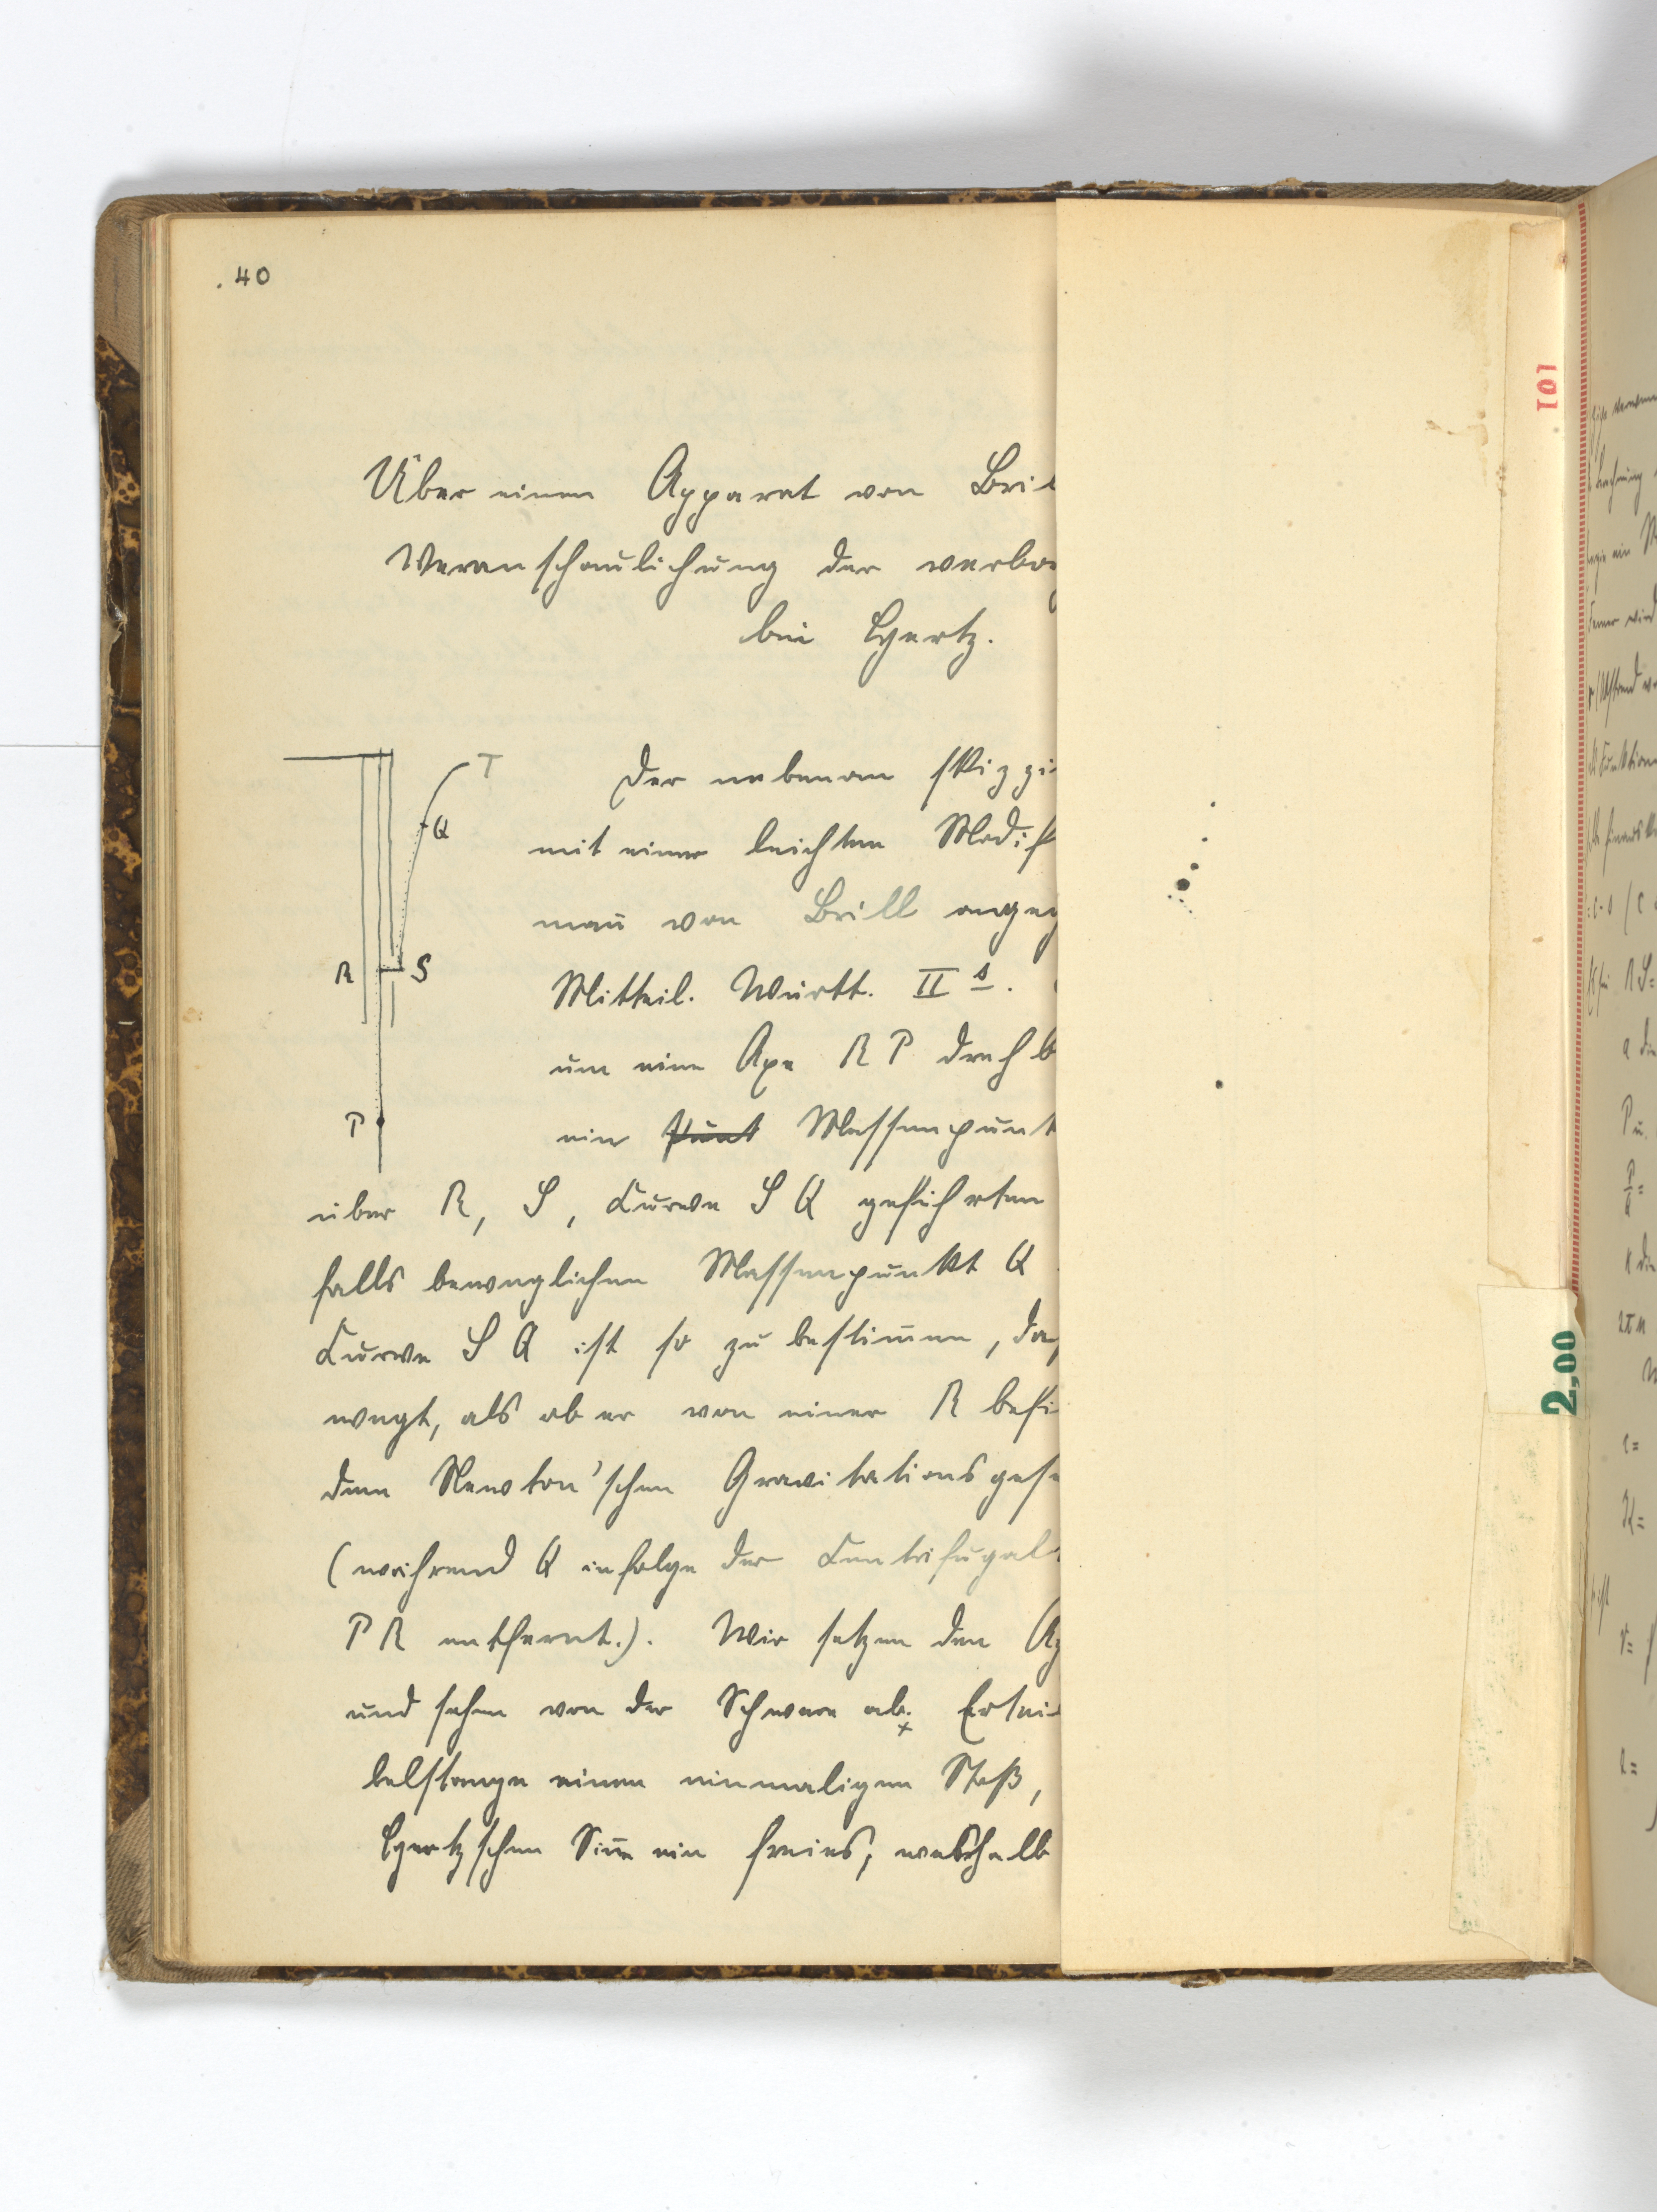 .40
Über einen Apparat von Bril
Veranschaulichung der verbor
bei Hertz.
T
Q
R
S
P
Der nebenan skizzi
mit einer leichten Modif
mau von Brill angeg
Mitteil. Württ. II s.
um eine Axe RP drehb
ein Punt Massenpunt
über R, S, Curve SQ geführten
falls beweglichen Massenpunkt Q
Curve SQ ist so zu bestim̄en, da
wegt, als ob er von einer R befi
dem Newton'schen Gravitationsgese
(während Q infolge der Centrifugal
PR entfernt.). Wir setzen den Ap
und sehen von der Schwere ab. Ertei
belstange einen einmaligen Stoß,
Hertzschen Sin̄e ein freies, weshalb
101
2,00